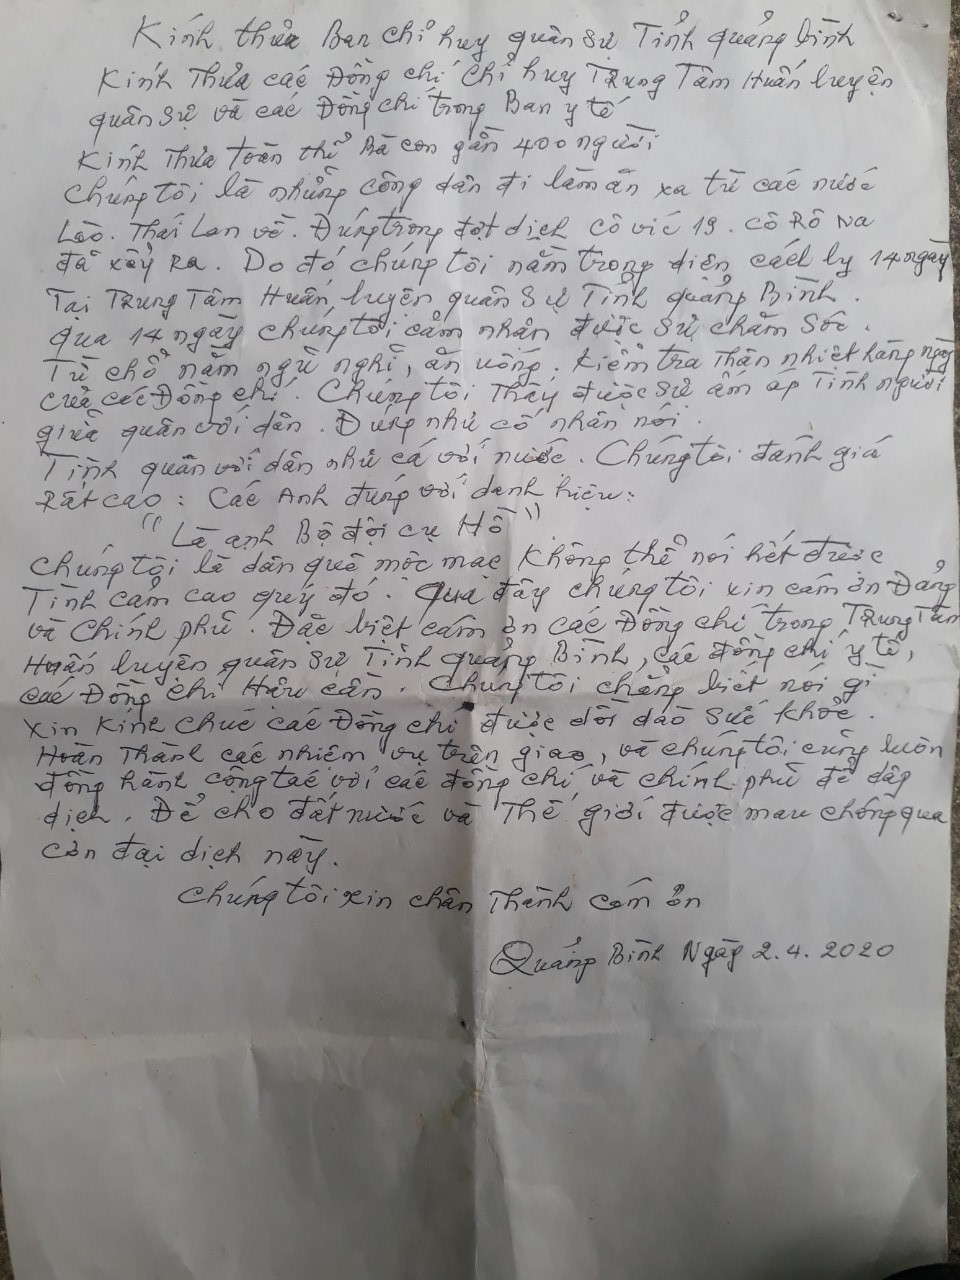 Kính thưa Ban chỉ huy quân sự Tỉnh quảng bình
Kính Thưa các Đồng chí chỉ huy Trung Tâm Huấn luyện
quân sự và các Đồng chí trong Ban y tế
Kính Thưa toàn thể Bà con gần 400 người
Chúng tôi là những công dân đi làm ăn xa từ các nước
Lào. Thái Lan về. Đúng trong đợt dịch cô vic 19. cô Rô Na
đã xảy Ra. Do đó chúng tôi nằm trong diện cách ly 14 ngày
Tại Trung Tâm Huấn luyện quân sự Tỉnh quảng Bình.
qua 14 ngày chúng tôi cảm nhận được sự chăm sóc.
Từ chổ nằm ngủ nghỉ, ăn uống. kiểm tra Thân nhiệt hàng ngày
của các Đồng chí. Chúng tôi Thấy được sự ấm áp Tình người
giữa quân với dân. Đúng như cố nhân nói.
Tình quân với dân như cá với nước. Chúng tôi đánh giá
Rất cao: Các Anh đúng với danh hiệu:
"Là anh Bộ đội cụ Hồ"
Chúng tôi là dân quê mộc mạc không thể nói hết được
Tình cảm cao quý đó. Qua đây chúng tôi xin cám ơn Đảng
và Chính phủ. Đặc biệt cám ơn các Đồng chí trong Trung Tâm
Huấn luyện quân sự Tỉnh quảng Bình, các đồng chí y tế,
các Đồng chí Hậu cần. Chúng tôi chẳng biết nói gì
xin kính chúc các Đồng chí được dồi dào sức khỏe.
Hoàn Thành các nhiệm vụ trên giao, và chúng tôi cũng luôn
đồng hành cộng tác với các đồng chí và chính phủ để dập
dịch. Để cho đất nước và Thế giới được mau chóng qua
cơn đại dịch này.
Chúng tôi xin chân Thành cám ơn
Quảng Bình Ngày 2.4.2020